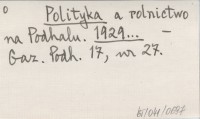 Polityka a rolnictwo
na Podhalu. 1929... –
Gaz. Podh. 17, nr 27.